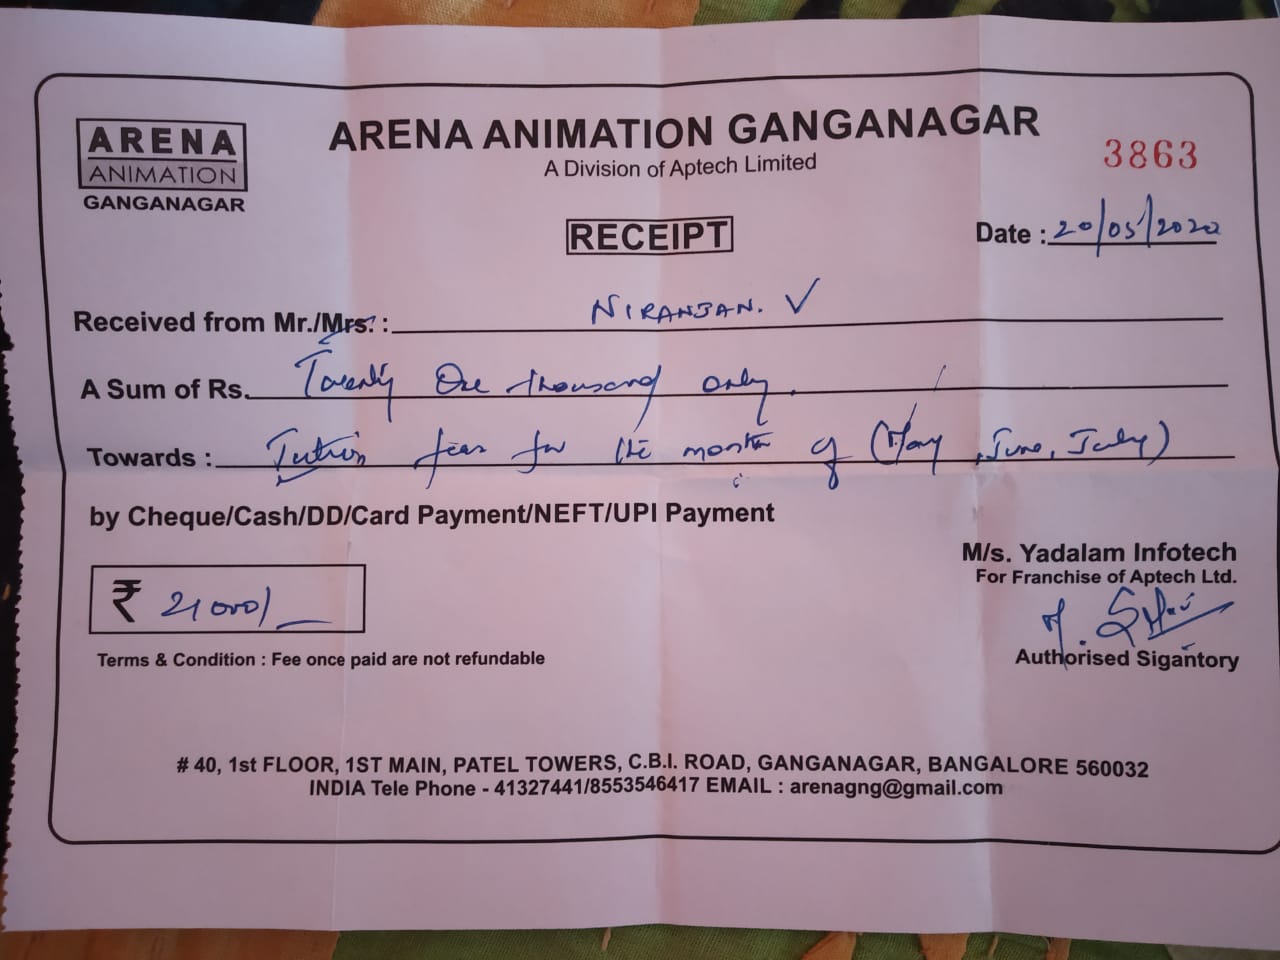 ARENA ANIMATION GANGANAGAR
A Division of Aptech Limited
ARENA
ANIMATION
GANGANAGAR
3863
RECEIPT
Date : 20/05/2020
Received from Mr./Mrs. : NIRANJAN. V
A Sum of Rs. Twenty One thousand only.
Towards : Tution fees for the month of (May, June, July)
by Cheque/Cash/DD/Card Payment/NEFT/UPI Payment
₹ 21000/_
M/s. Yadalam Infotech
For Franchise of Aptech Ltd.
Authorised Sigantory
Terms & Condition : Fee once paid are not refundable
# 40, 1st FLOOR, 1ST MAIN, PATEL TOWERS, C.B.I. ROAD, GANGANAGAR, BANGALORE 560032
INDIA Tele Phone - 41327441/8553546417 EMAIL : arenagng@gmail.com